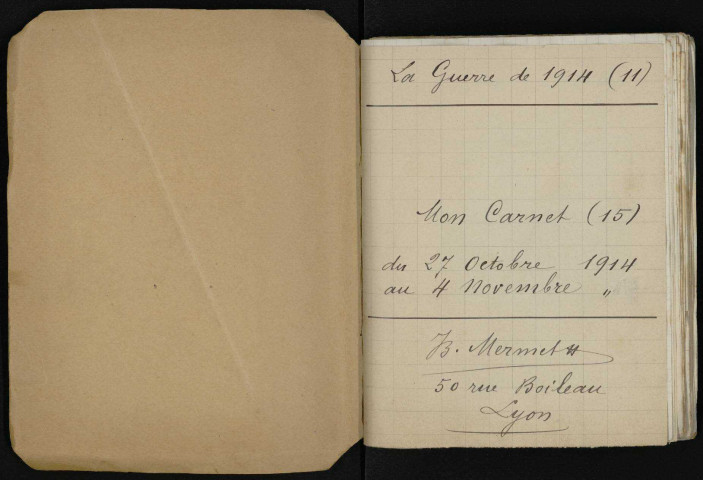 La Guerre de 1914 (11)
Mon Carnet (15)
du 27 Octobre 1914
au 4 Novembre "
B. Mermet
50 rue Boileau
Lyon